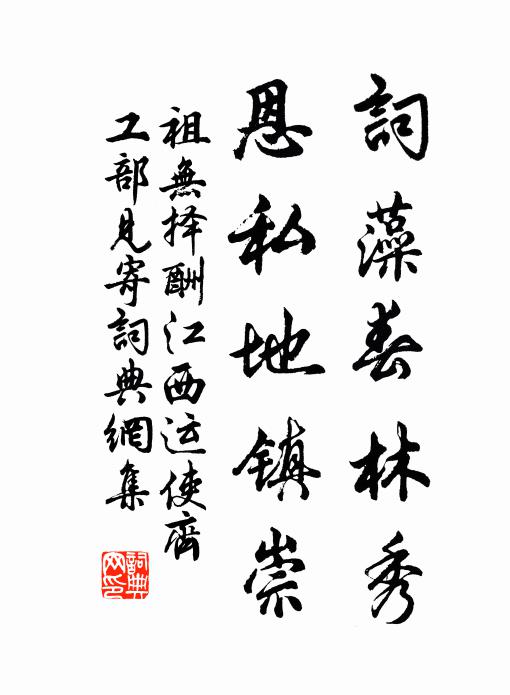 詞藻春林秀
恩私地镇崇
祖無择酬江西运使齊
工部見寄詞典網集
詞典网印